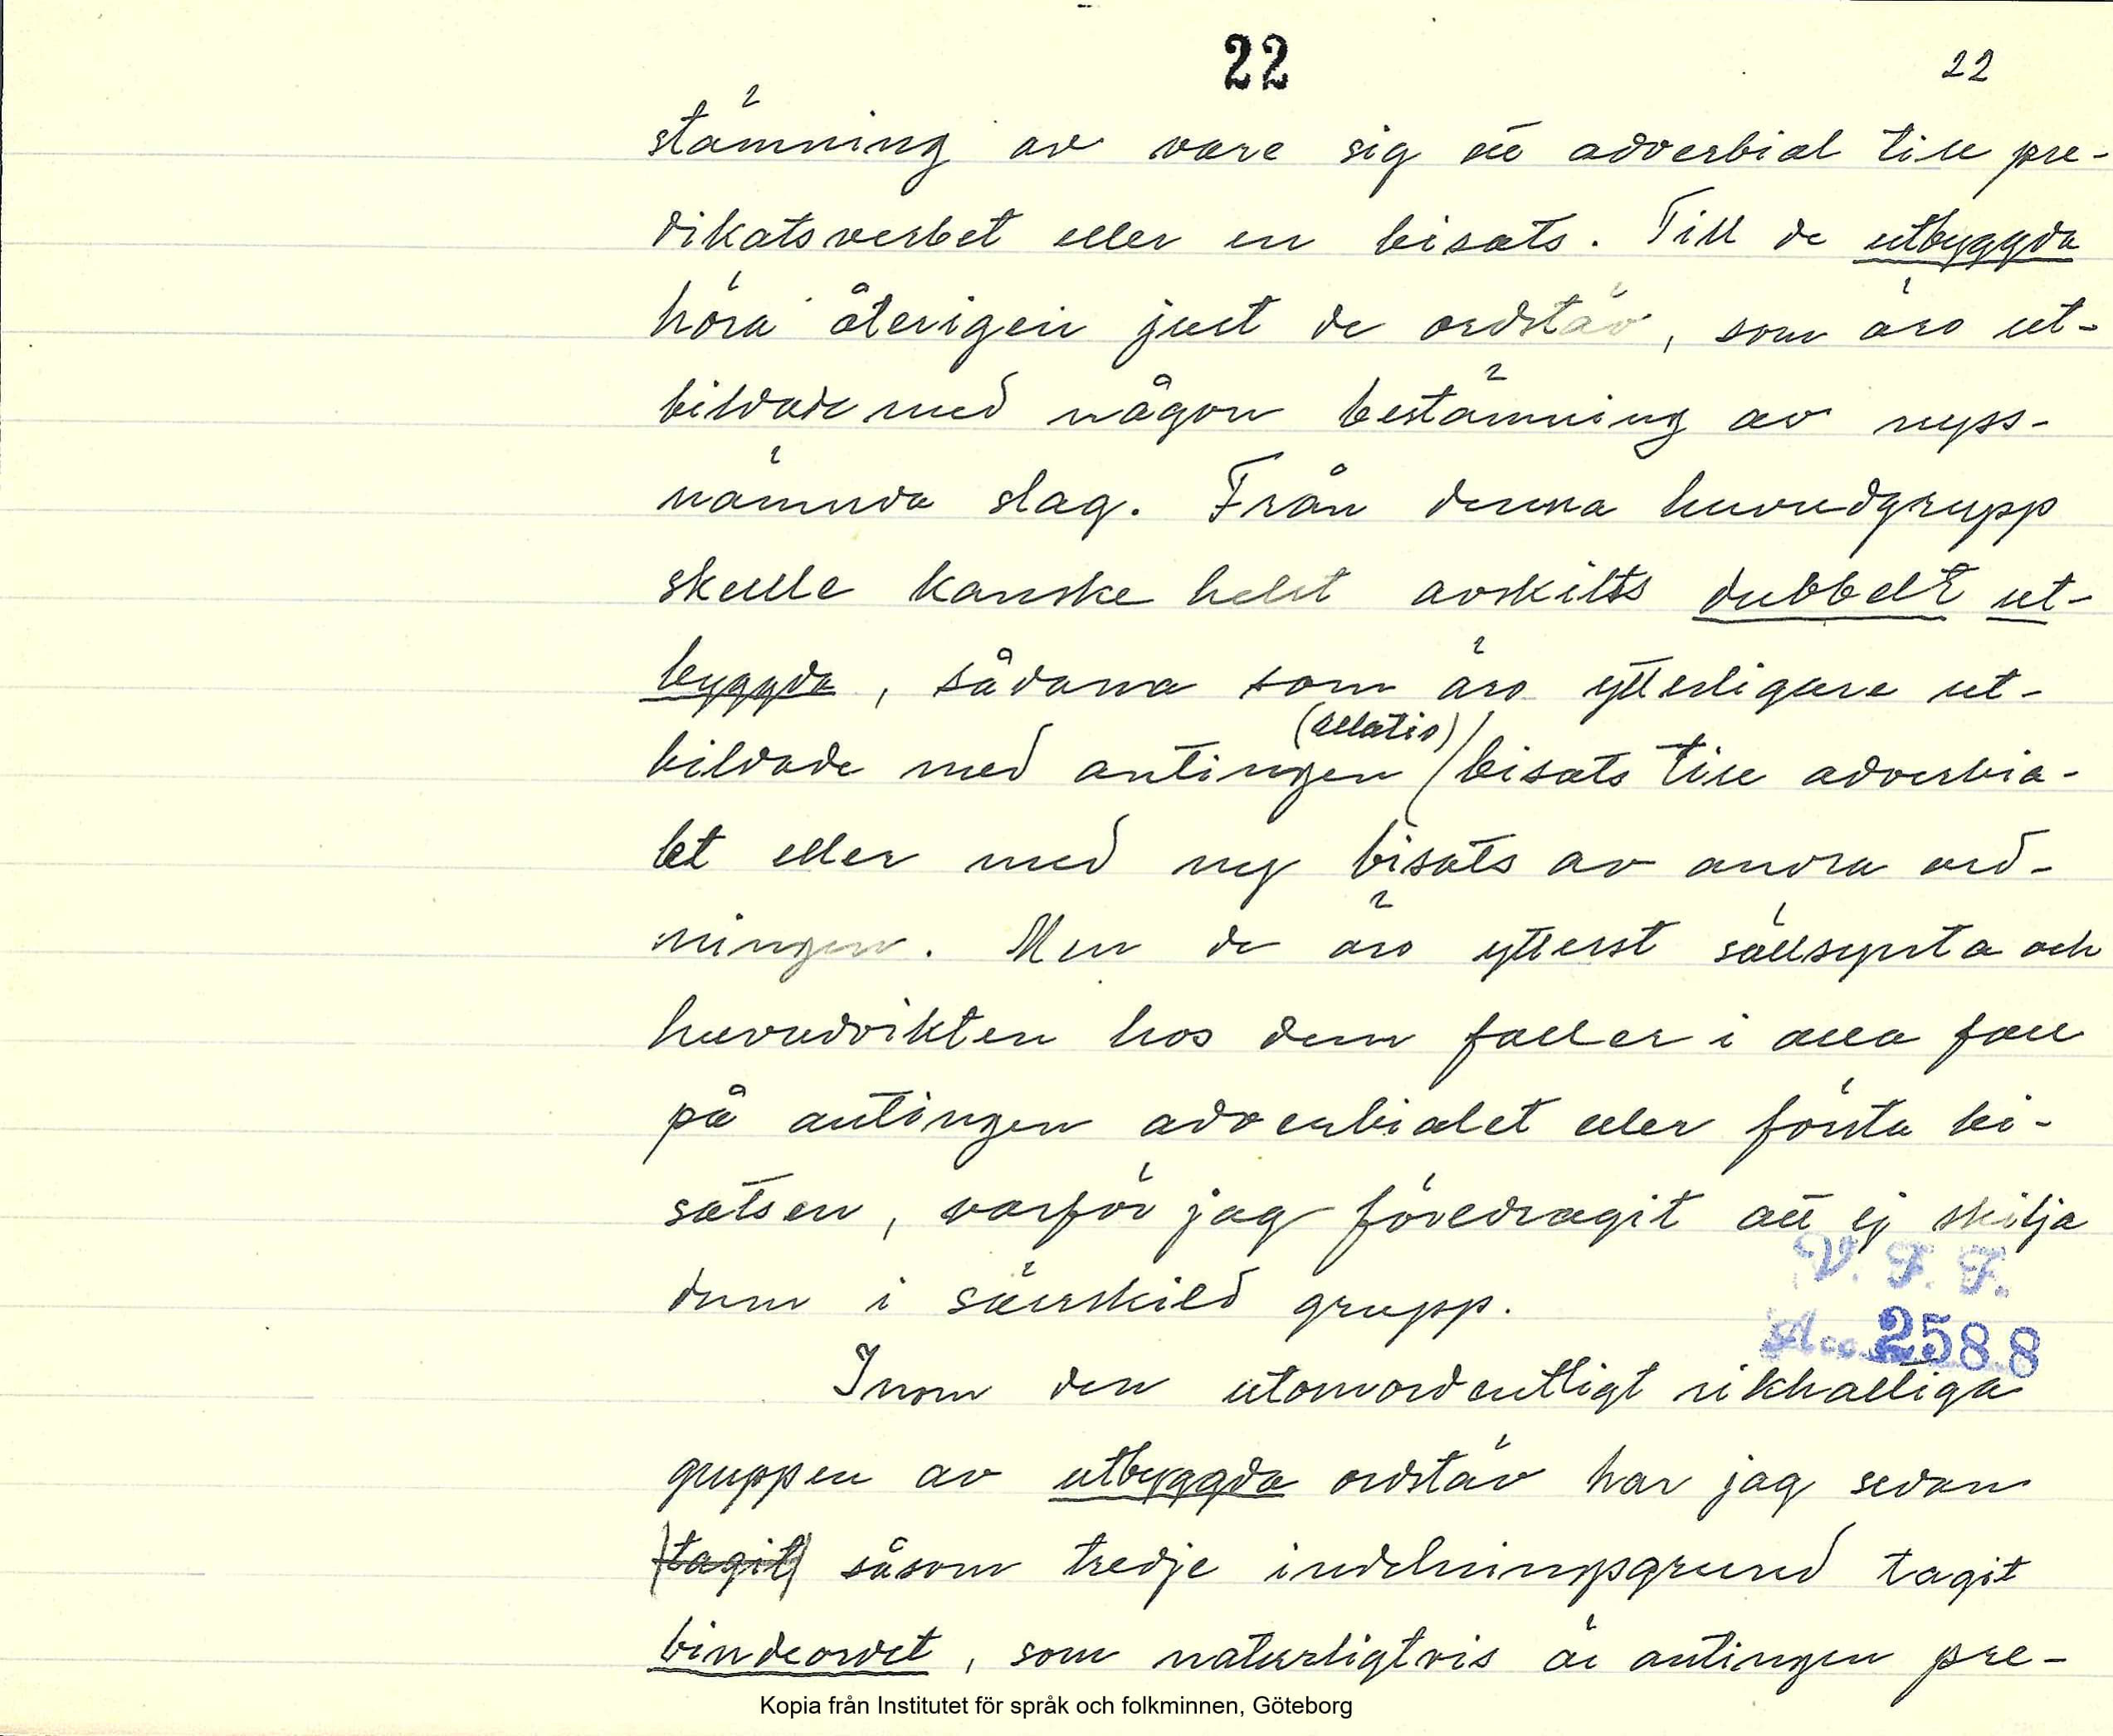 22
22
stämning av vare sig ett adverbial till pre-
dikatsverbet eller en bisats. Till de utbyggda
höra återigen just de ordstäv, som äro ut-
bildade med någon bestämning av nyss-
nämnda slag. Från denna huvudgrupp
skulle kanske helst avskilts dubbelt ut-
byggda, sådana som äro ytterligare ut-
(relativ)
bildade med antingen bisats till adverbia-
let eller med ny bisats av andra ord-
ningen. Men de äro ytterst sällsynta och
huvudvikten hos dem faller i alla fall
på antingen adverbialet eller första bi-
satsen, varför jag föredragit att ej skilja
dem i särskild grupp.
V. F. F.
Acc. 2588
Inom den utomordentligt rikhaltiga
gruppen av utbyggda ordstäv har jag sedan
(tagit) såsom tredje indelningsgrund tagit
bindeordet, som naturligtvis är antingen pre-
Kopia från Institutet för språk och folkminnen, Göteborg